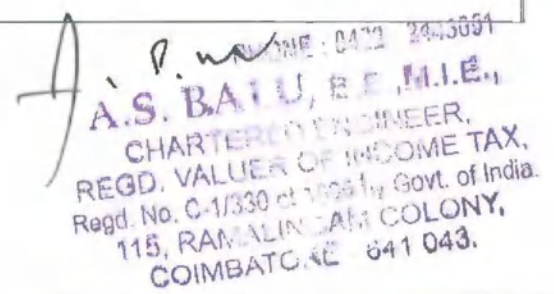 PHONE : 0422 2443691
A.S. BALU, B.E., M.I.E.,
CHARTERED ENGINEER,
REGD. VALUER OF INCOME TAX,
Regd. No. C-1/330 of Govt. of India.
115, RAMALINGAM COLONY,
COIMBATORE 641 043.